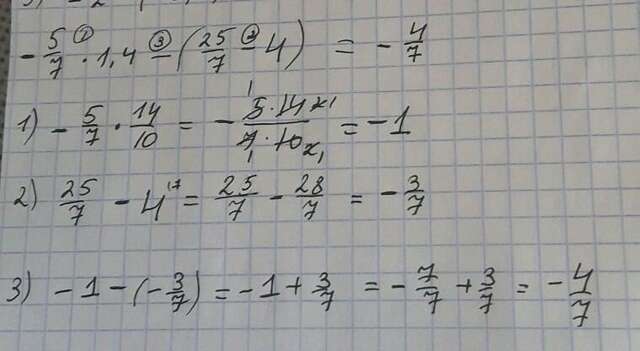 -5/7 ① · 1,4 ③ - (25/7 ② - 4) = -4/7
1) -5/7 · 14/10 = -5·14/7·10 = -1
2) 25/7 - 4 = 25/7 - 28/7 = -3/7
3) -1 - (-3/7) = -1 + 3/7 = -7/7 + 3/7 = -4/7